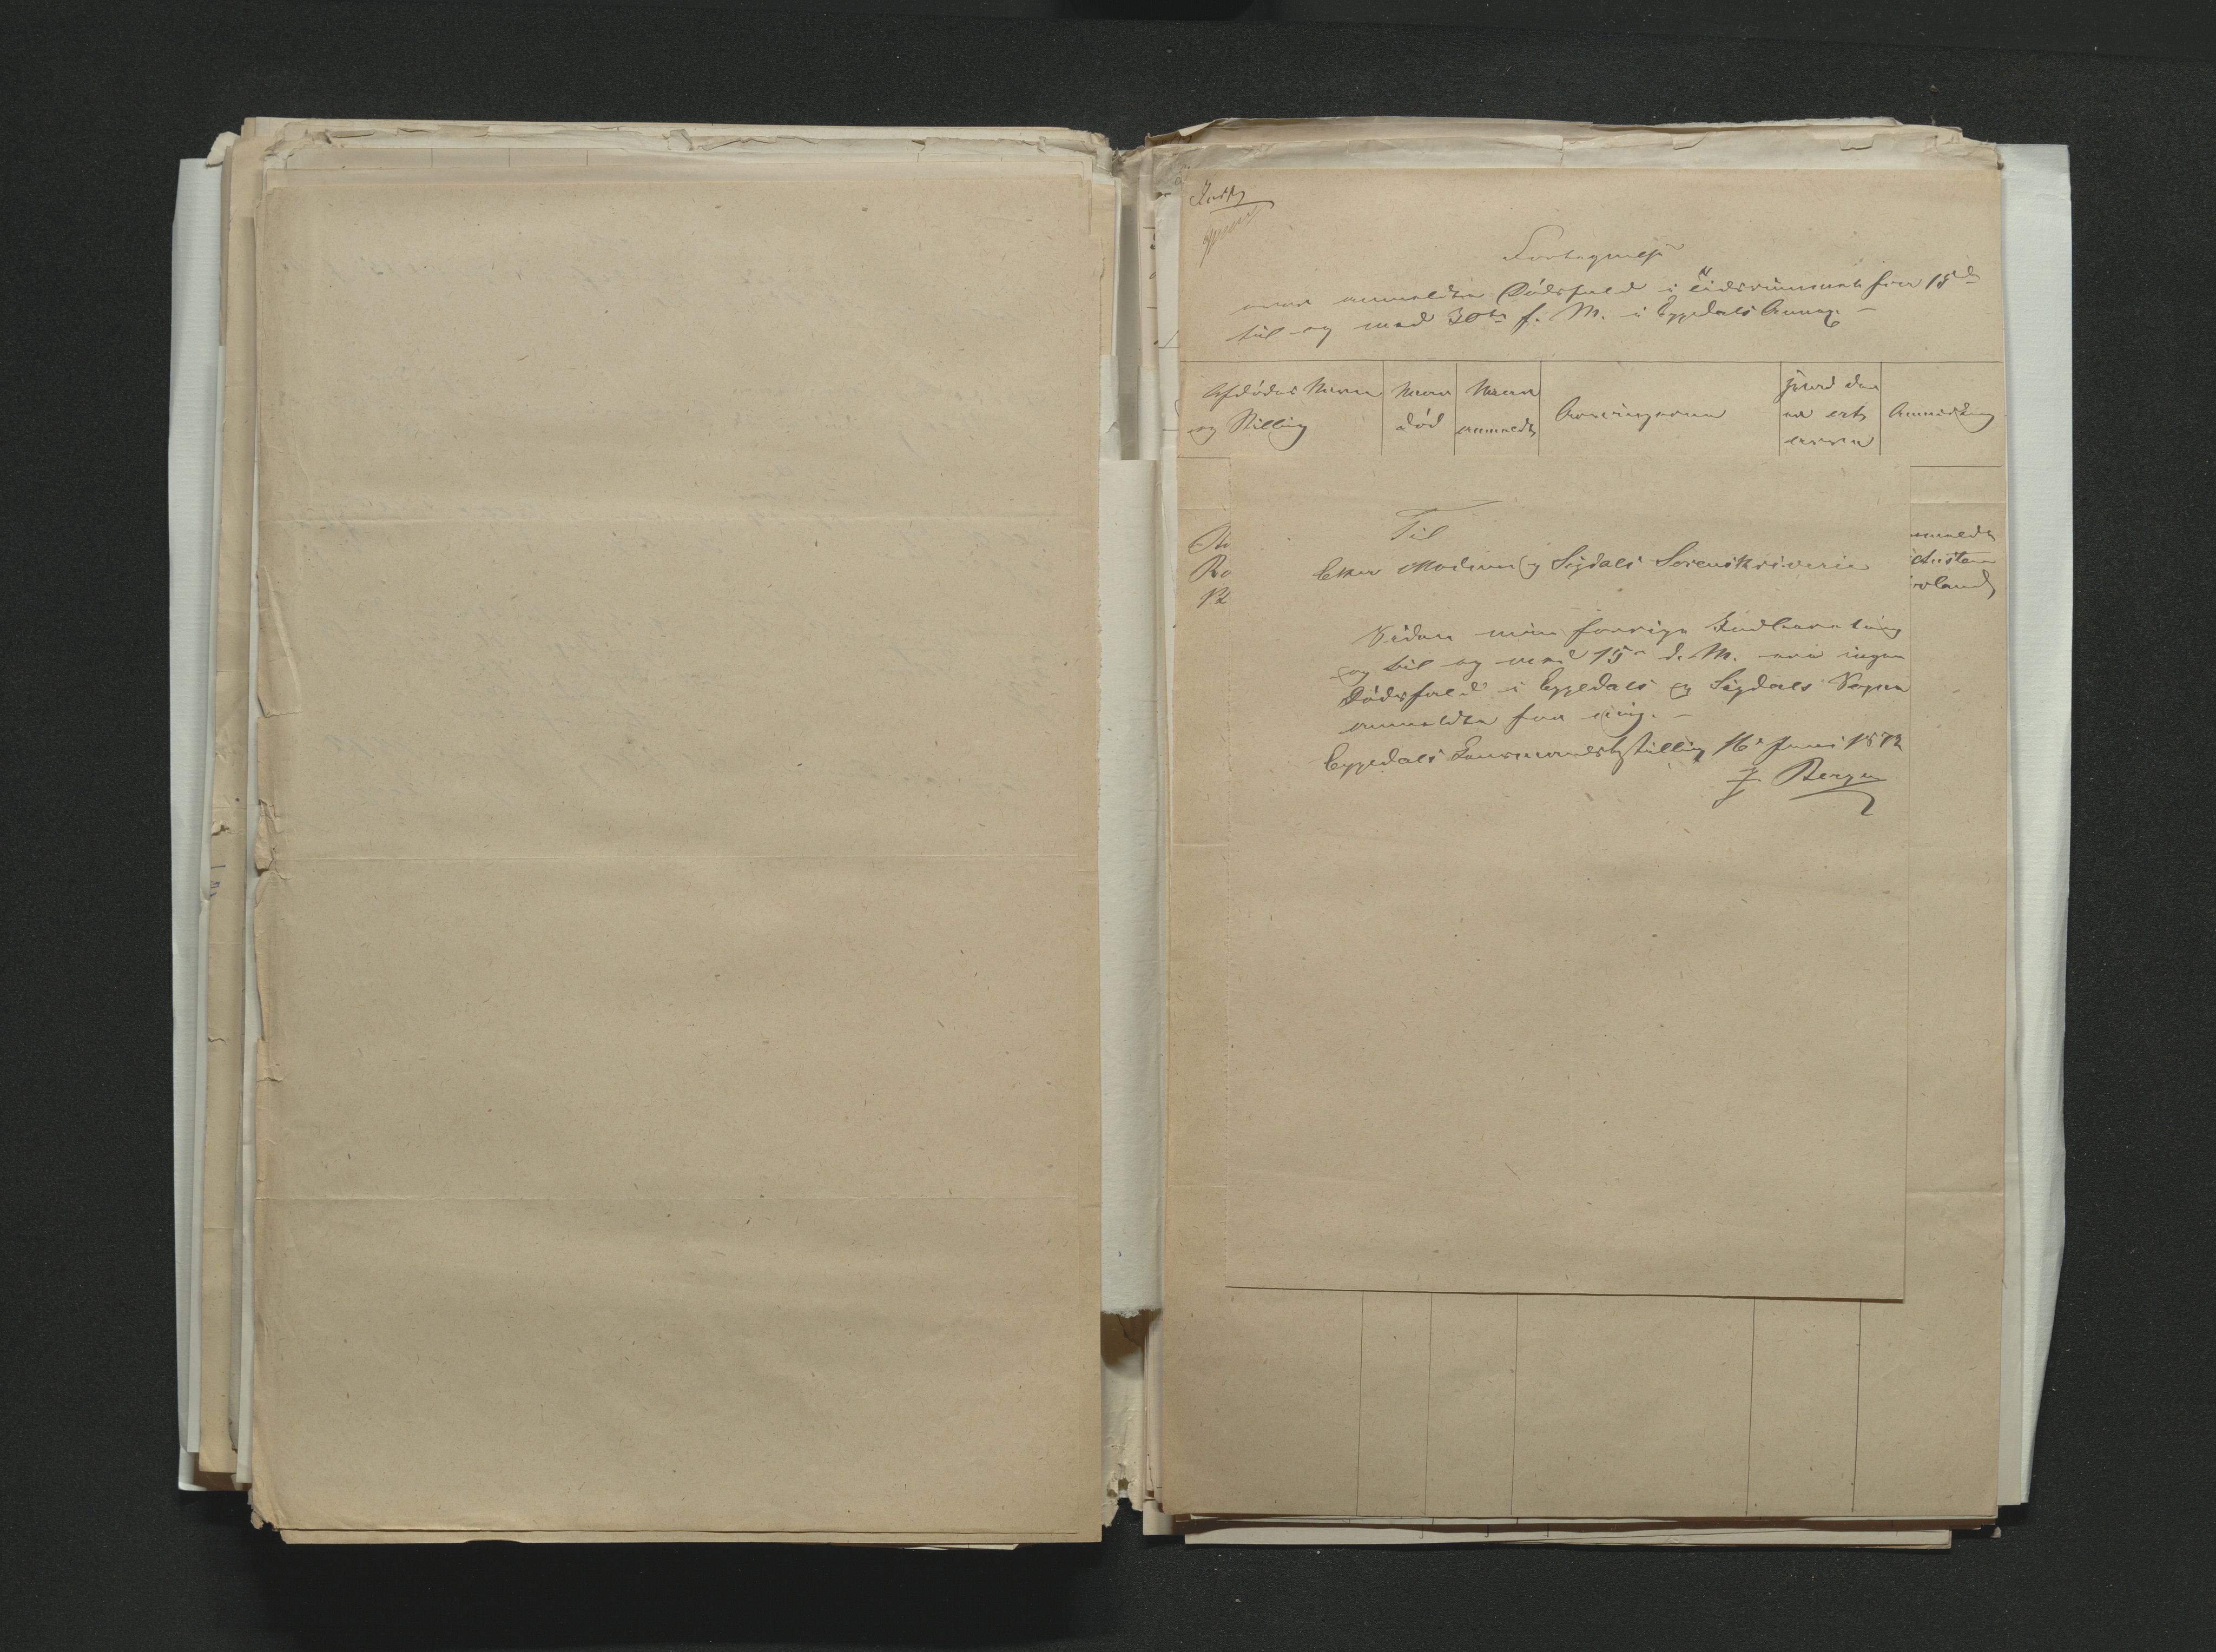 Fortegnelse
over anmeldte Dødsfald i Tidsrummet fra 15de
til og med 30te f. M. i Eggedals Annex.
Afdødes Navn
og Stilling
Naar
død
Naar
anmeldt
Arvingerne
Hvad der
er efterladt
Anmerkning
Ro
anmeldt
Kristen
rvland
Til
Eker Modum og Sigdals Sorenskriveri
Siden min forrige Indberetning
og til og med 15de d. M. ere ingen
Dødsfald i Eggedals og Sigdals Sogne
anmeldte for mig. –
Eggedals Lensmandsbestilling 16de Juni 1872
J. Bergan